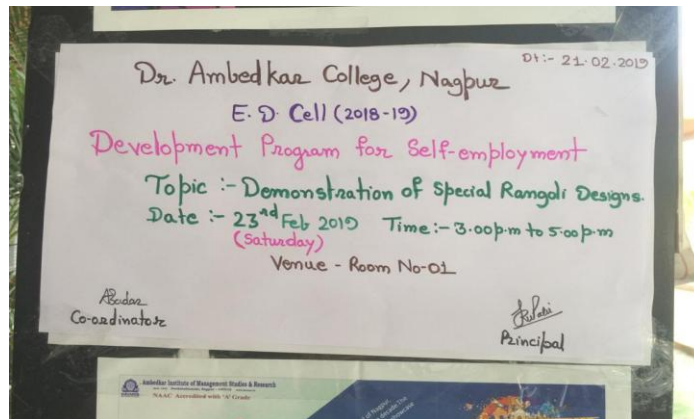 Dt:- 21.02.2019
Dr. Ambedkar College, Nagpur
E. D. Cell (2018-19)
Development Program for Self-employment
Topic :- Demonstration of Special Rangoli Designs.
Date :- 23rd Feb 2019 Time:- 3.00p.m to 5.00p.m
(Saturday)
Venue - Room No-01
Co-ordinator
Principal
Ambedkar Institute of Management Studies & Research
NAAC Accredited with 'A' Grade